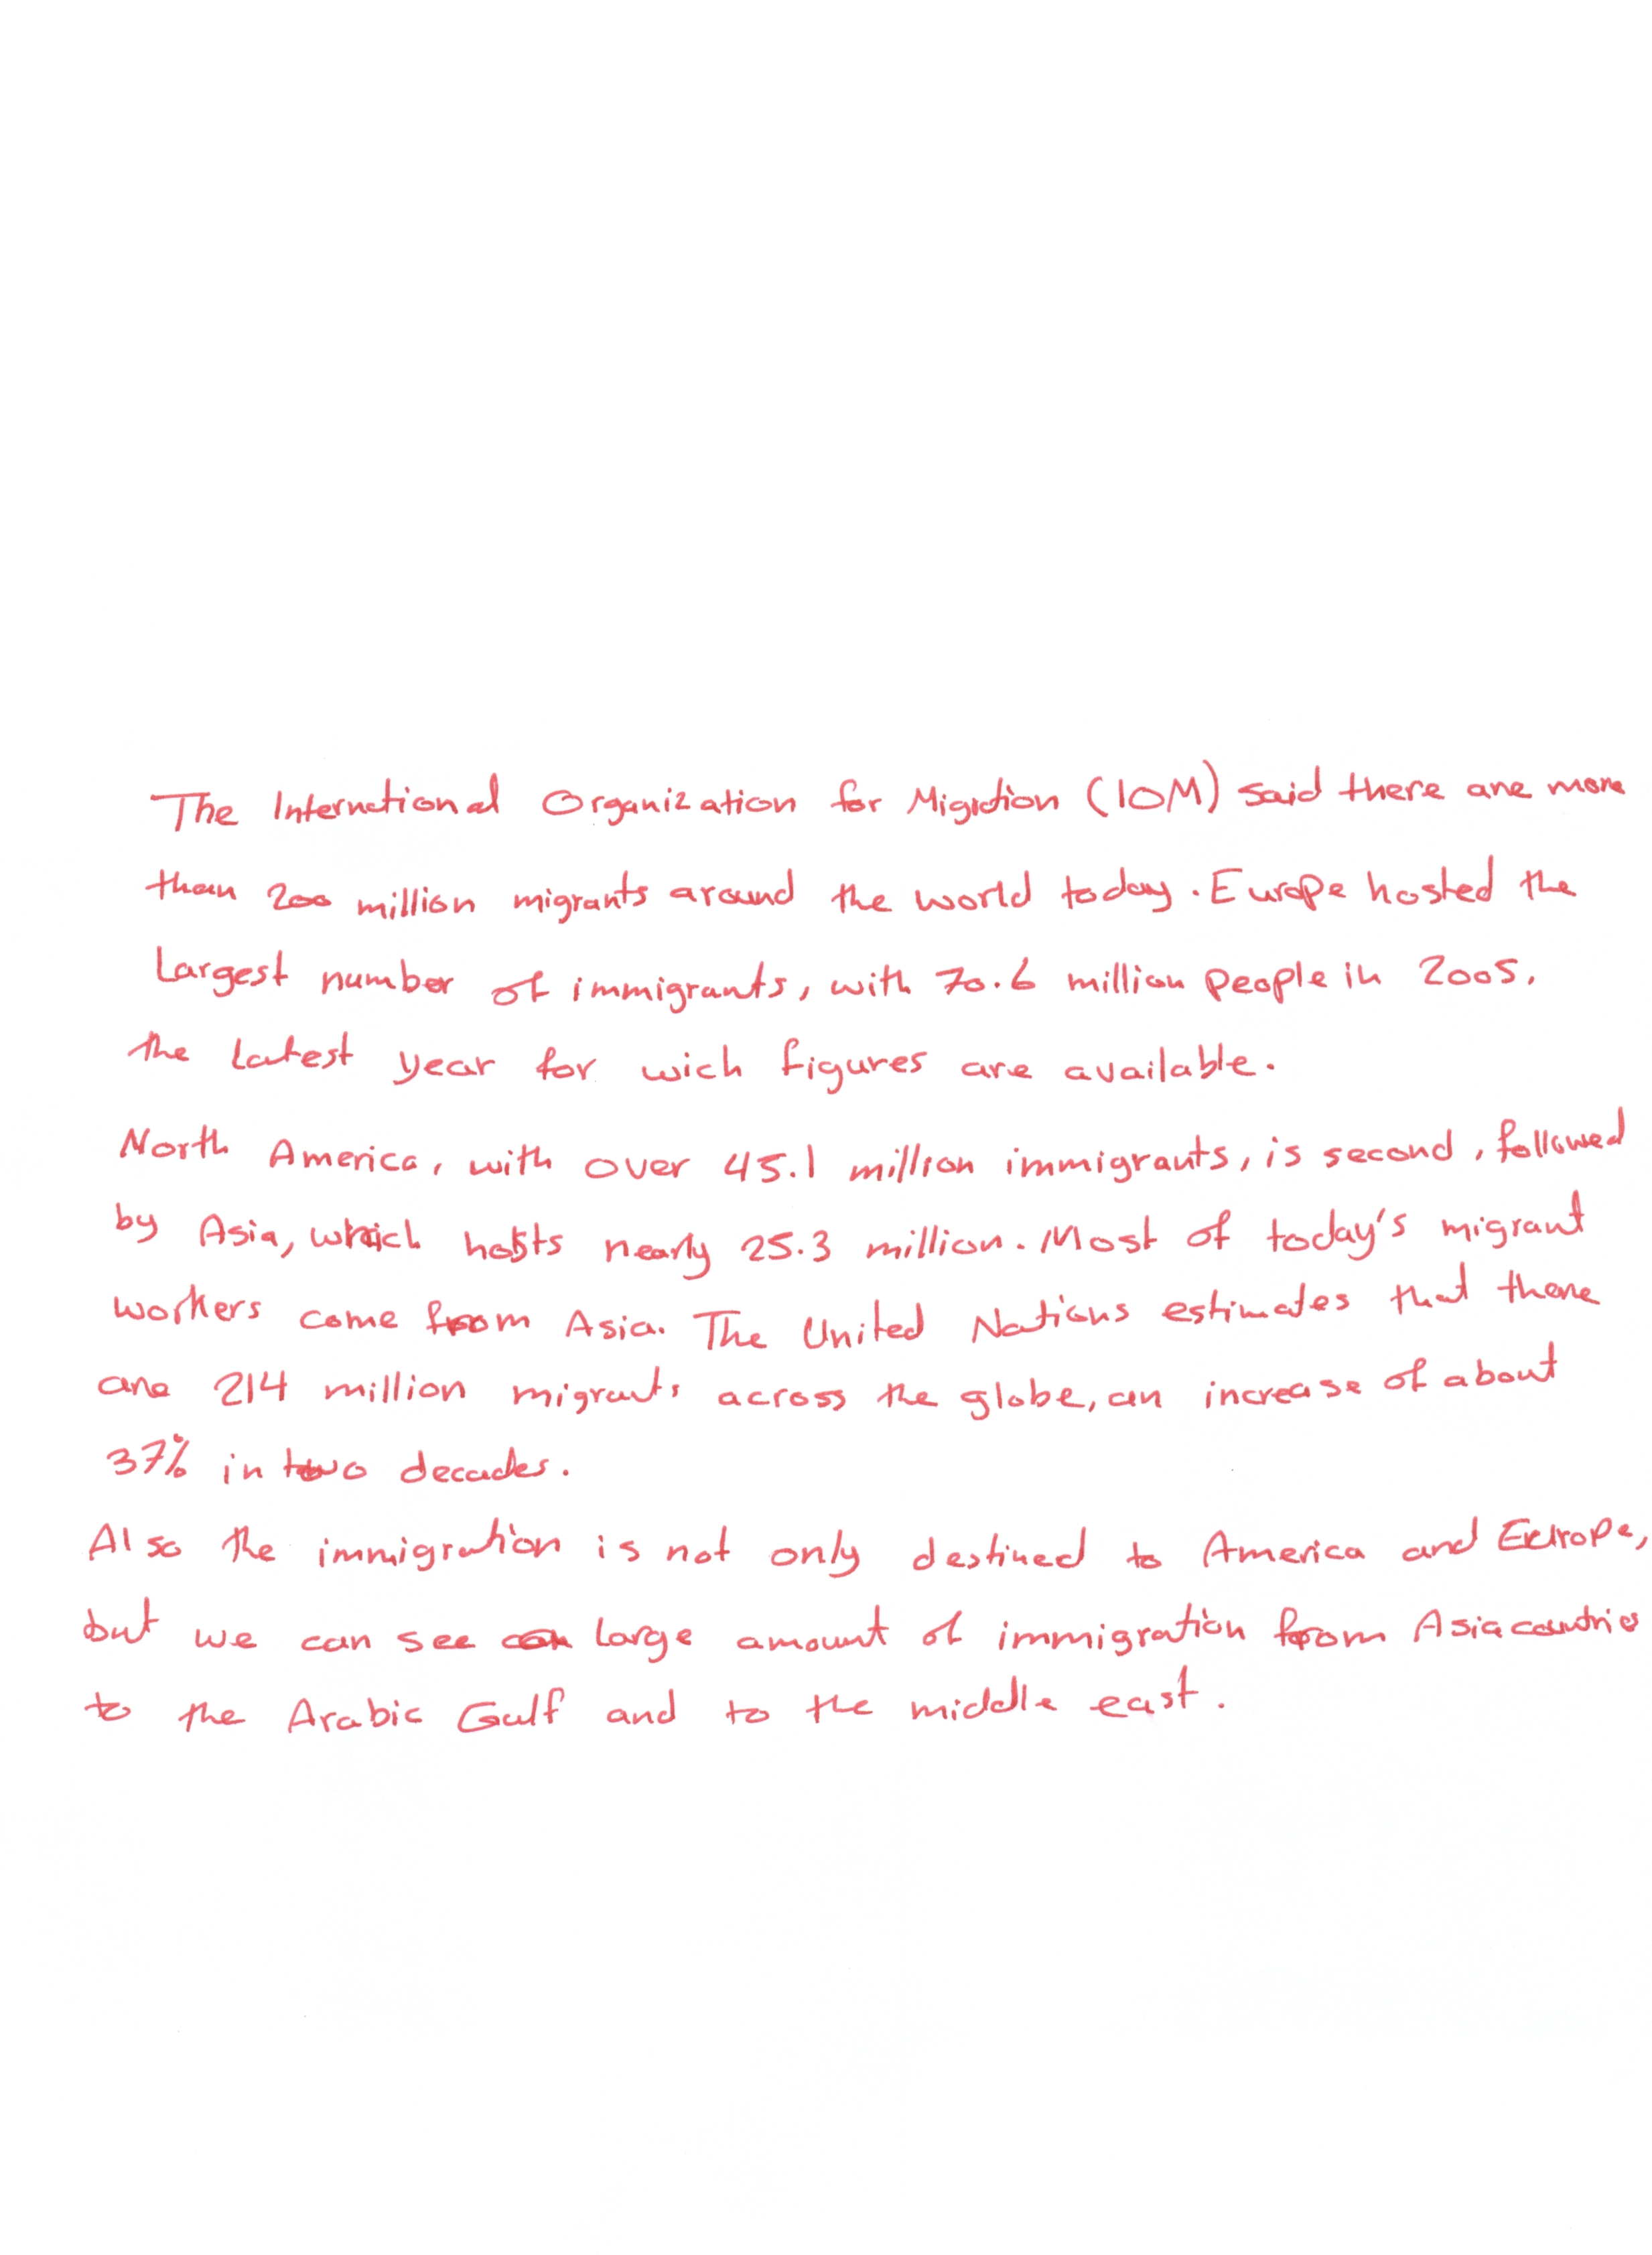 The International Organization for Migration (IOM) said there are more
than 200 million migrants around the world today. Europe hosted the
Largest number of immigrants, with 70.6 million people in 2005,
the latest year for wich figures are available.
North America, with over 45.1 million immigrants, is second, followed
by Asia, which hosts nearly 25.3 million. Most of today's migrant
workers come from Asia. The United Nations estimates that there
are 214 million migrants across the globe, an increase of about
37% in two decades.
Also the immigration is not only destined to America and Europe,
but we can see large amount of immigration from Asia countries
to the Arabic Gulf and to the middle east.